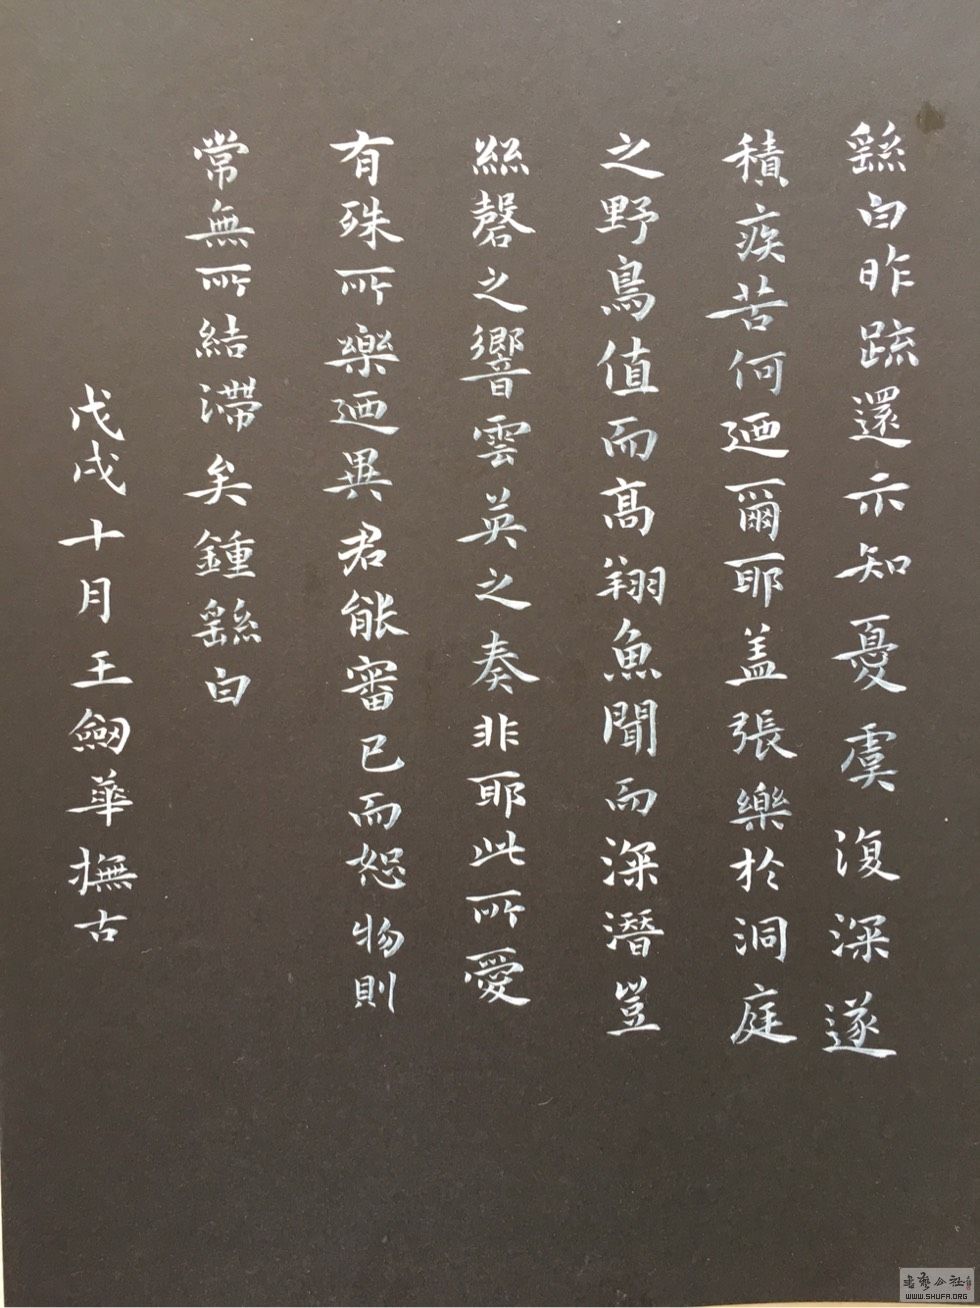 繇白昨疏還示知憂虞復深遂
積疾苦何迺爾耶蓋張樂於洞庭
之野鳥值而高翔魚聞而深潛豈
絲磬之響雲英之奏非耶此所愛
有殊所樂迺異君能審己而恕物則
常無所結滯矣鍾繇白
戊戌十月王劒華撫古
书艺公社
WWW.SHUFA.ORG